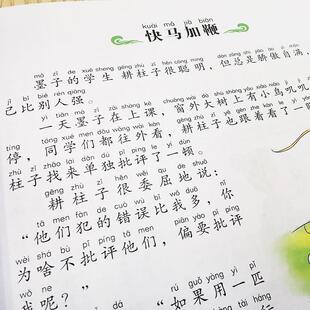 kuài mǎ jiā biān
快马加鞭
mò zǐ de xué shēng gēng zhù zǐ hěn cōng míng
墨子的学生耕柱子很聪明，但总是骄傲自满，
jǐ bǐ bié rén qiáng
己比别人强。
yì tiān mò zǐ zài shàng kè
一天墨子在上课，窗外大树上有小鸟叽叽
tíng
停，同学们都往外看，耕柱子也跟着看了一
柱子找来单独批评了一顿。
gēng zhù zǐ hěn wěi qu de shuō
耕柱子很委屈地说：
tā men fàn de cuò wù bǐ wǒ duō nǐ
“他们犯的错误比我多，你
wèi shá bù pī píng tā men piān yào pī píng
为啥不批评他们，偏要批评
wǒ ne rú guǒ yòng yì pǐ
我呢？” “如果用一匹